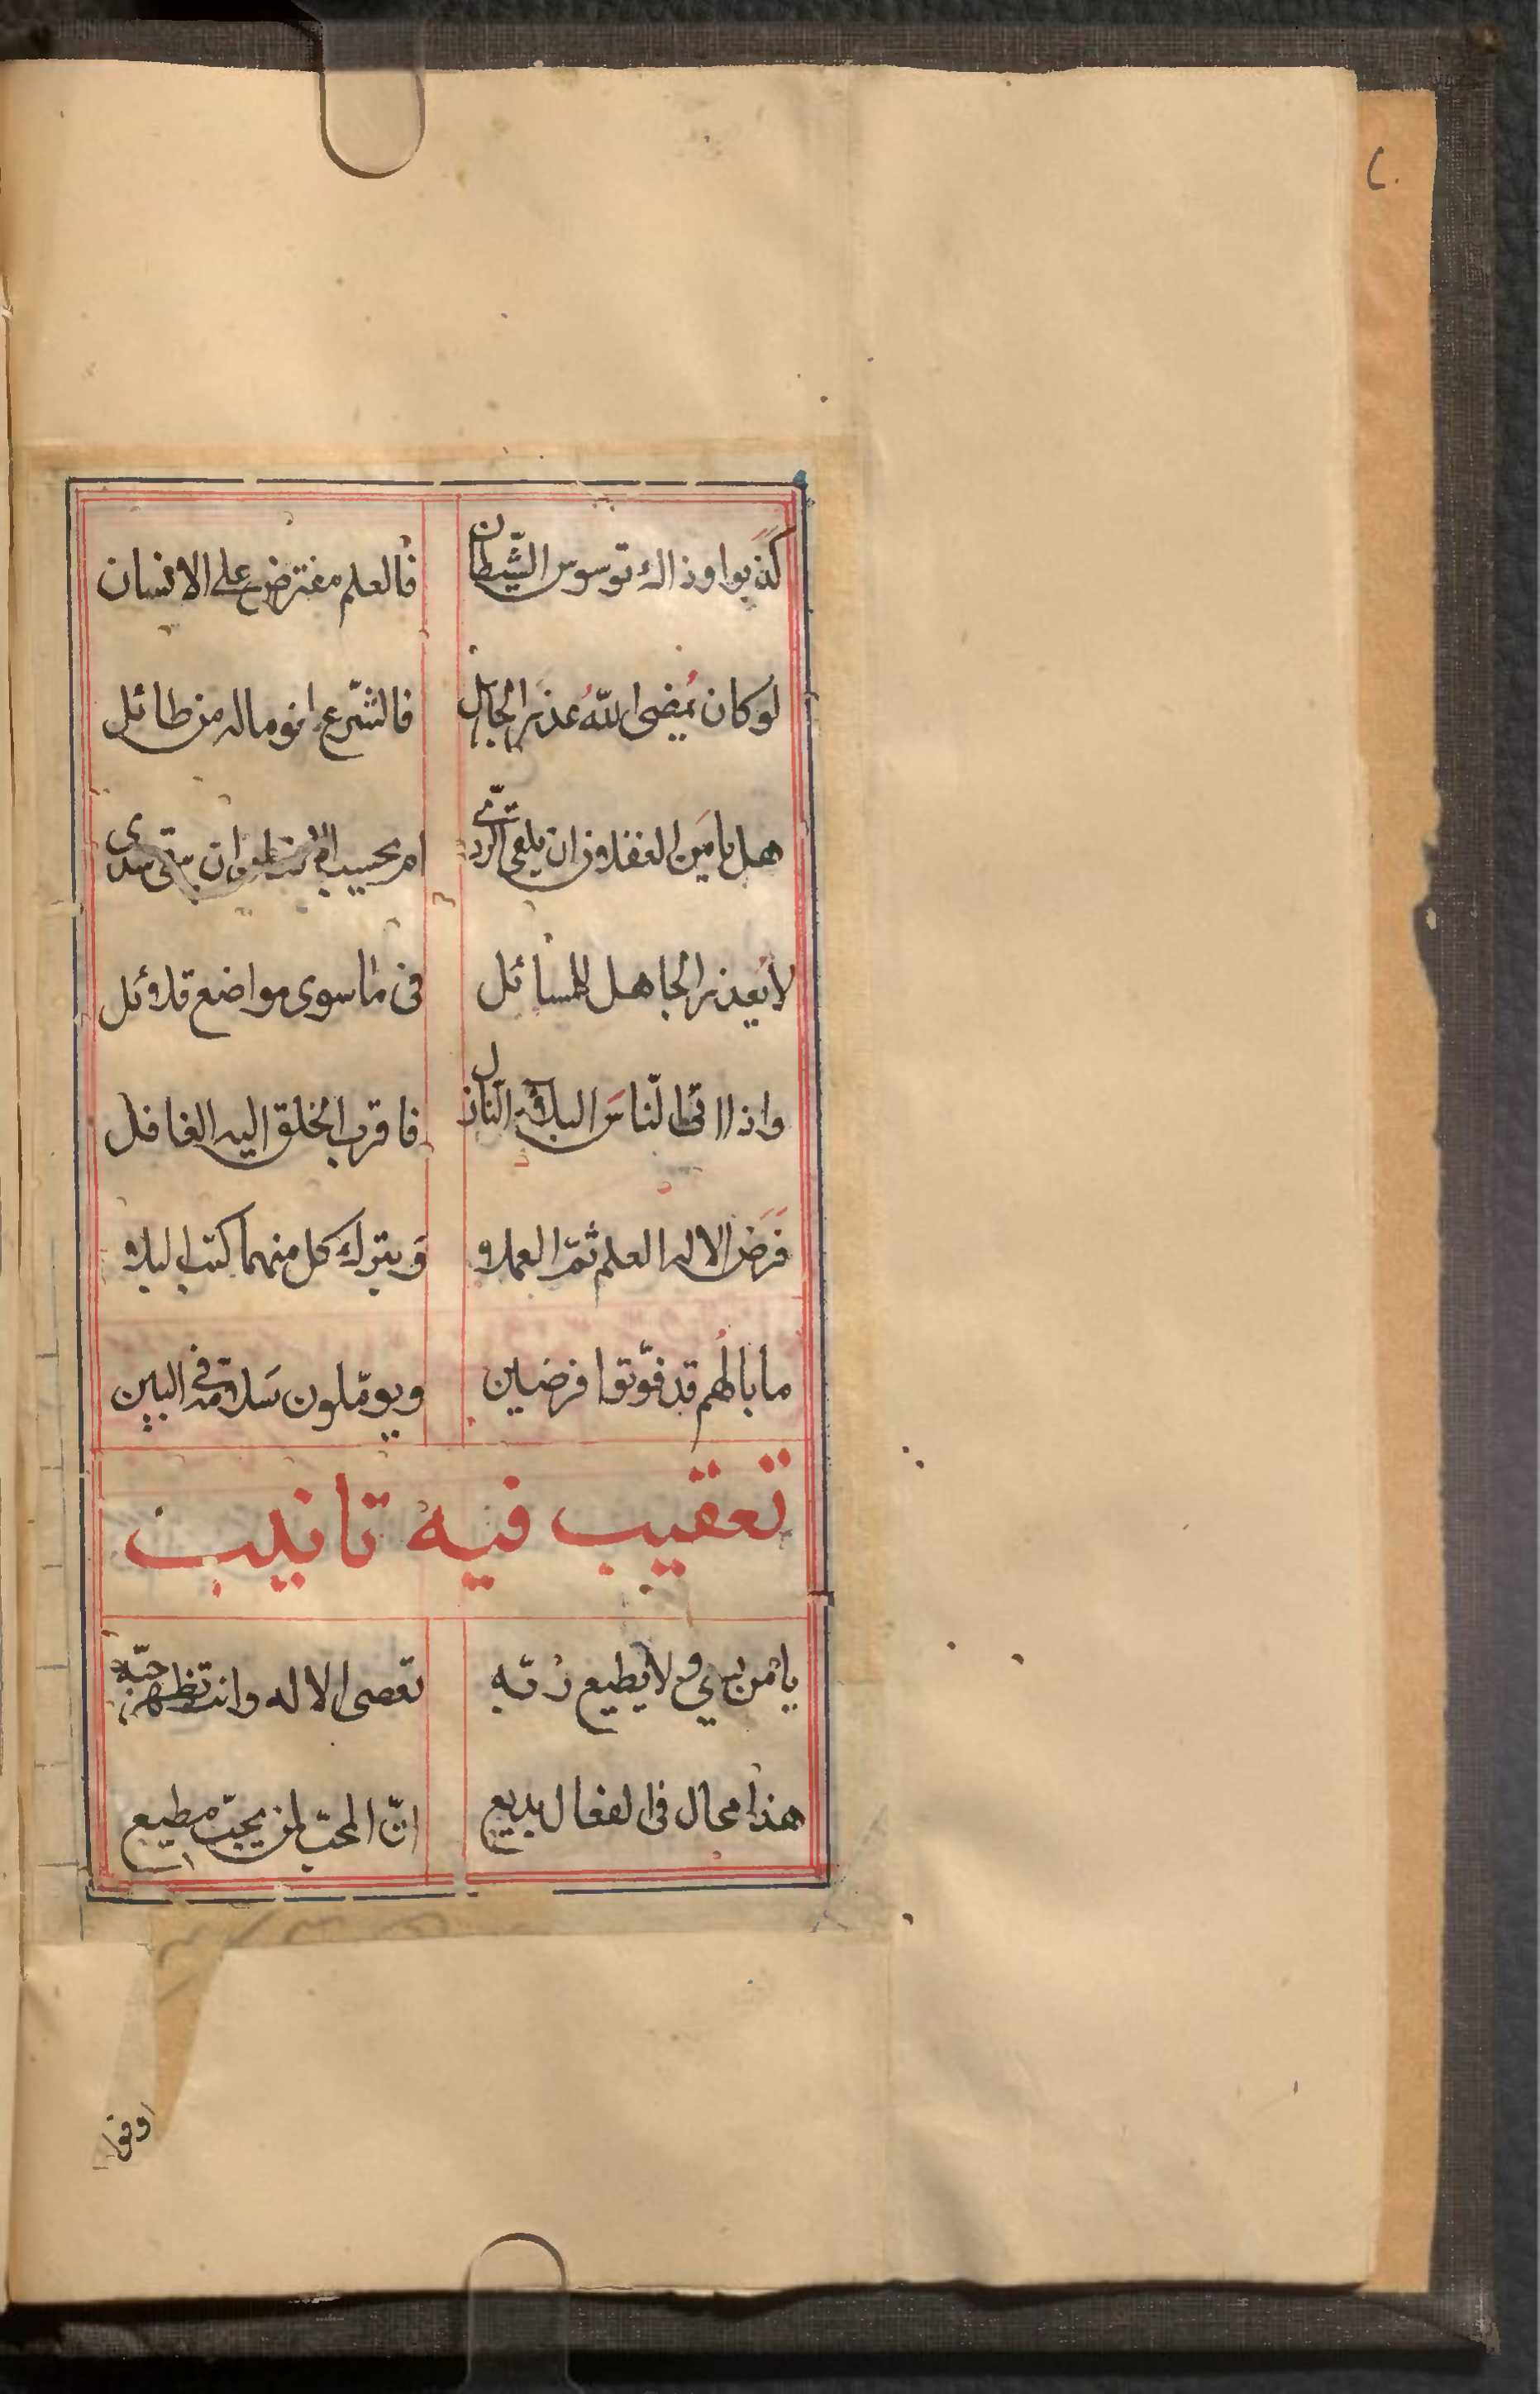 كذبوا وذاك توسوس الشّيطان فالعلم مفترض على الانسان
لو كان يُمضى اللهُ عذر الجاهل فالشّرع لغو ماله من طائل
هل يامَن الغفلان ان يلقى الرّدى ام يحسب الانسان ان يبقى سدى
لا يُعذر الجاهل للمسائل فى ما سوى مواضع قلائل
واذا اتى النّاسَ البلاء النّازل فاقرب الخلق اليه الغافل
فَرَض الاله العلم ثمّ العملا وبترك كل منهما كتب البلا
ما بالُهم قد فوّتوا فرضين ويومّلون سَلامة فى البين
تعقيب فيه تانيب
يا مَن لا يطيع ربّه تعصى الاله وانت تظهر حبّه
هذا محال فى الفعال بديع انّ المحبّ لمن يحبّ مطيع